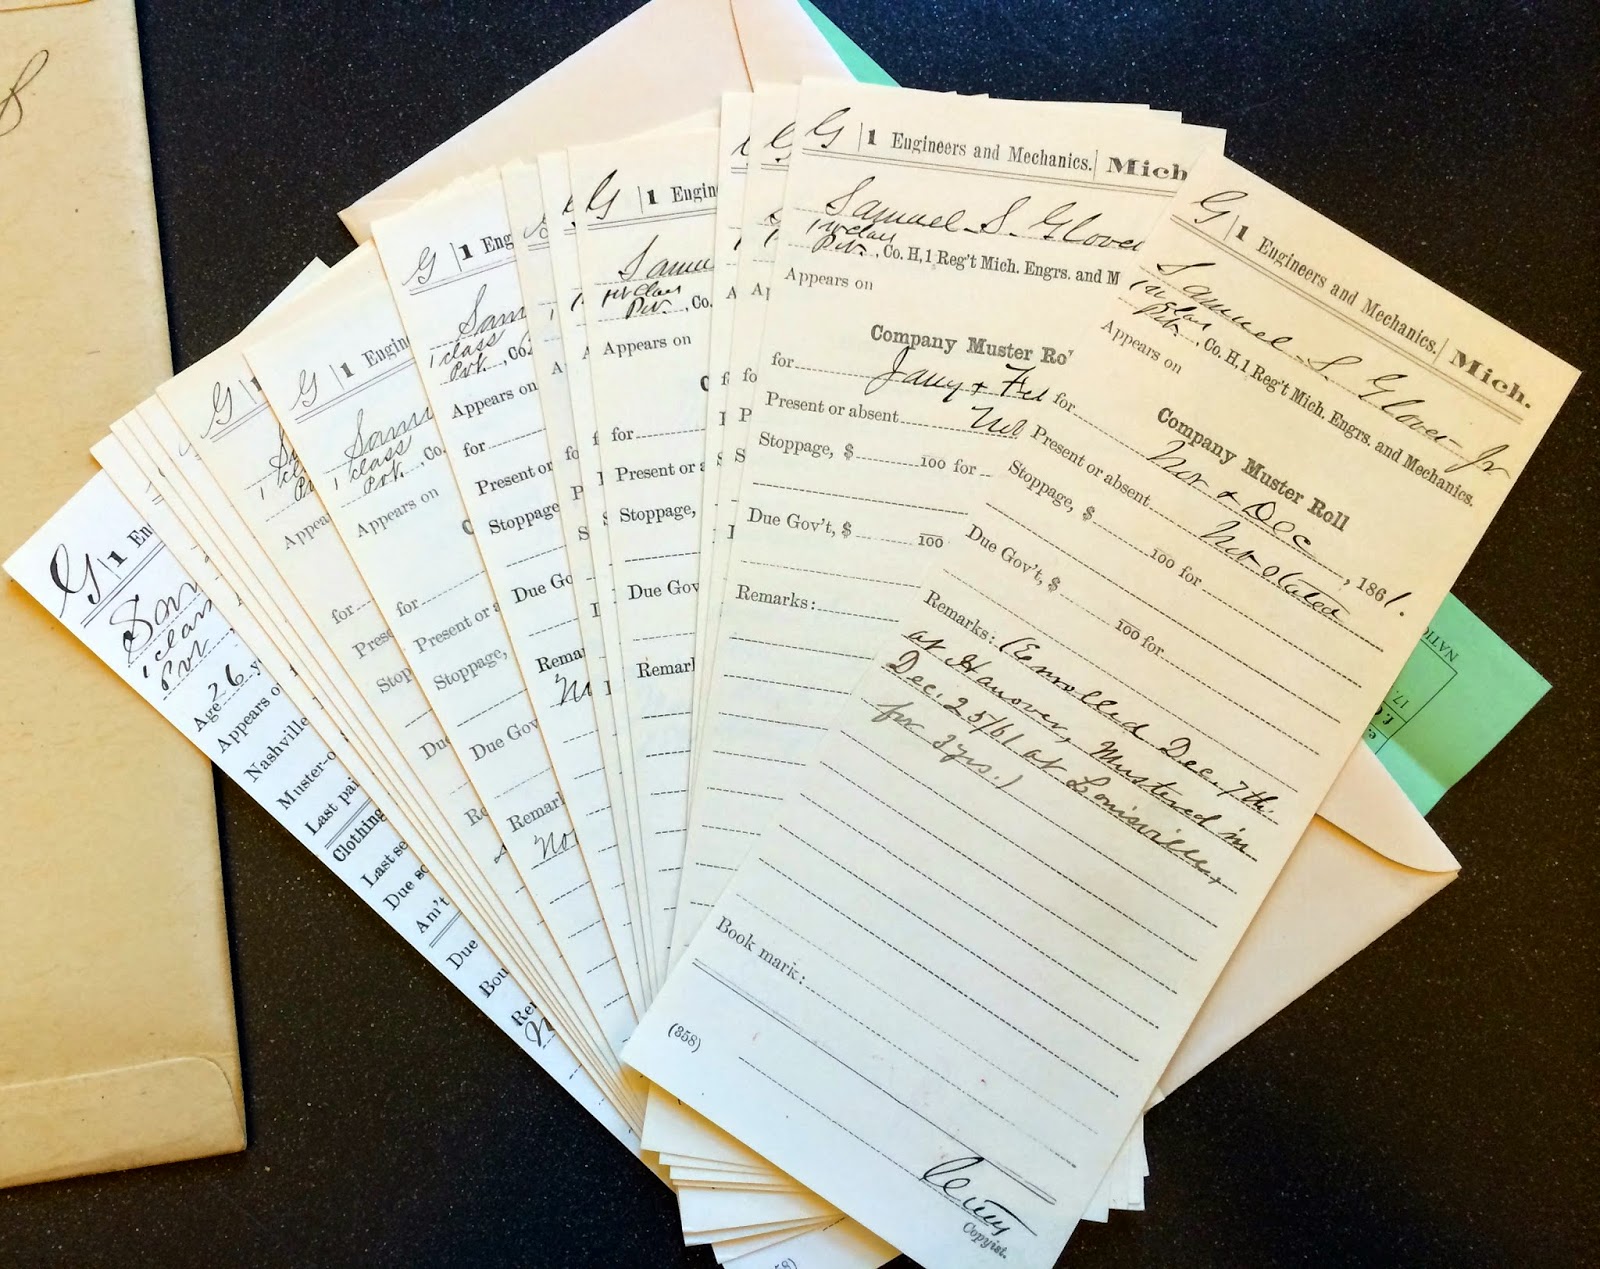 G | 1 Engineers and Mechanics. | Mich.
Samuel S. Glover Jr
1st Class
Pvt., Co. H, 1 Reg't Mich. Engrs. and Mechanics.
Appears on
Company Muster Roll
for Nov + Dec, 1861.
Present or absent Not Stated
Stoppage, $ 100 for
Due Gov't, $ 100 for
Remarks: (Enrolled Dec. 7th.
at Hanover, Mustered in
Dec. 25/61 at Louisville,
for 3 yrs.)
Book mark:
(358)
Copyist.
G | 1 Engineers and Mechanics. | Mich
Samuel S. Glover
1st Class
Pvt., Co. H, 1 Reg't Mich. Engrs. and M
Appears on
Company Muster Ro
for Jany + Feb
Present or absent Not
Stoppage, $ 100 for
Due Gov't, $ 100
Remarks:
G | 1 Engin
Samu
1st Class
Pvt., Co.
Appears on
for
Present or a
Stoppage,
Due Gov
Remar
G | 1 Eng
Sam
1 class
Pvt., Co
Appears on
for
Present or
Stoppage
Due Go
Rema
G | 1 Engi
Samu
1 class
Pvt., Co.
Appears on
for
Present or a
Stoppage,
Due Gov
Remark
No
G | 1
1 class
Pvt.
Appear
for
Prese
Stop
Du
Re
G | 1 En
Sam
1 class
Pvt
Age 26 y
Appears o
Nashville
Muster-o
Last pai
Clothing
Last se
Due so
Am't
Due
Bou
Re
NATIO
17.